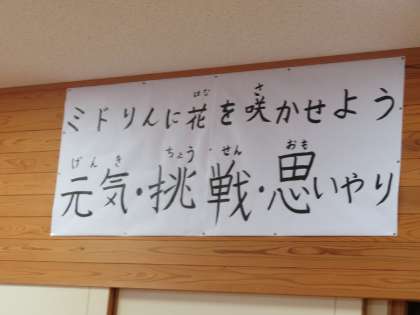 ミドりんに花を咲かせよう
元気・挑戦・思いやり